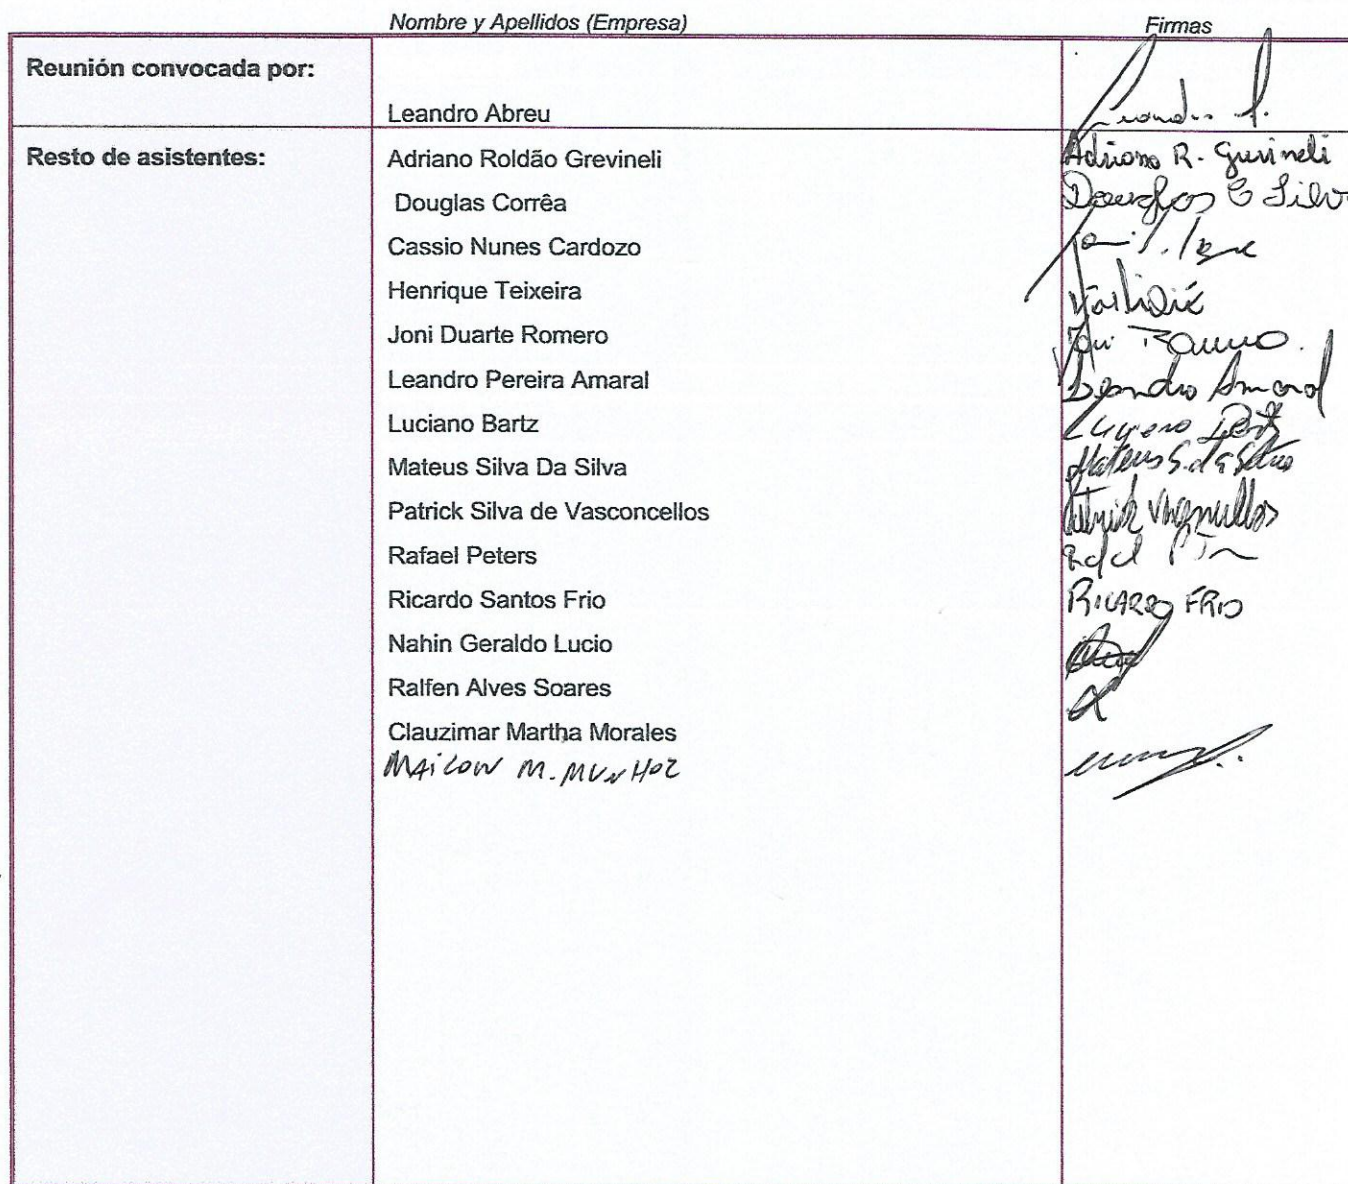 Nombre y Apellidos (Empresa) Firmas
Reunión convocada por:
Leandro Abreu
Resto de asistentes: Adriano Roldão Grevineli Adriano R. Grevineli
Douglas Corrêa Douglas C Silva
Cassio Nunes Cardozo
Henrique Teixeira
Joni Duarte Romero Joni Romero.
Leandro Pereira Amaral Leandro Amaral
Luciano Bartz Luciano Bartz
Mateus Silva Da Silva Mateus S. da Silva
Patrick Silva de Vasconcellos Patrick Vasconcellos
Rafael Peters
Ricardo Santos Frio RICARDO FRIO
Nahin Geraldo Lucio
Ralfen Alves Soares
Clauzimar Martha Morales
MAiCON M. MUNHOZ